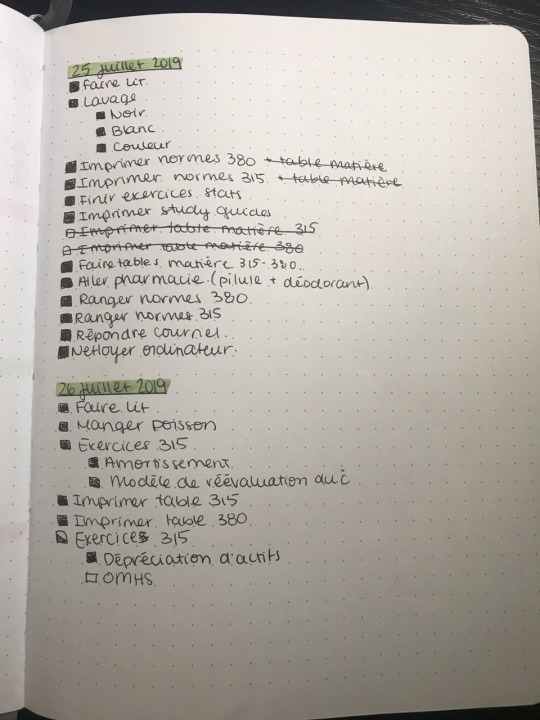 25 juillet 2019
Faire lit
Lavage
Noir
Blanc
Couleur
Imprimer normes 380 + table matière
Imprimer normes 315 + table matière
Finir exercices stats
Imprimer study guides
Imprimer table matière 315
Imprimer table matière 380
Faire tables matière 315-380
Aller pharmacie (pilule + déodorant)
Ranger normes 380
Ranger normes 315
Répondre courriel
Nettoyer ordinateur
26 juillet 2019
Faire lit
Manger poisson
Exercices 315
Amortissement
Modèle de réévaluation du ĉ
Imprimer table 315
Imprimer table 380
Exercices 315
Dépréciation d'actifs
OMHS